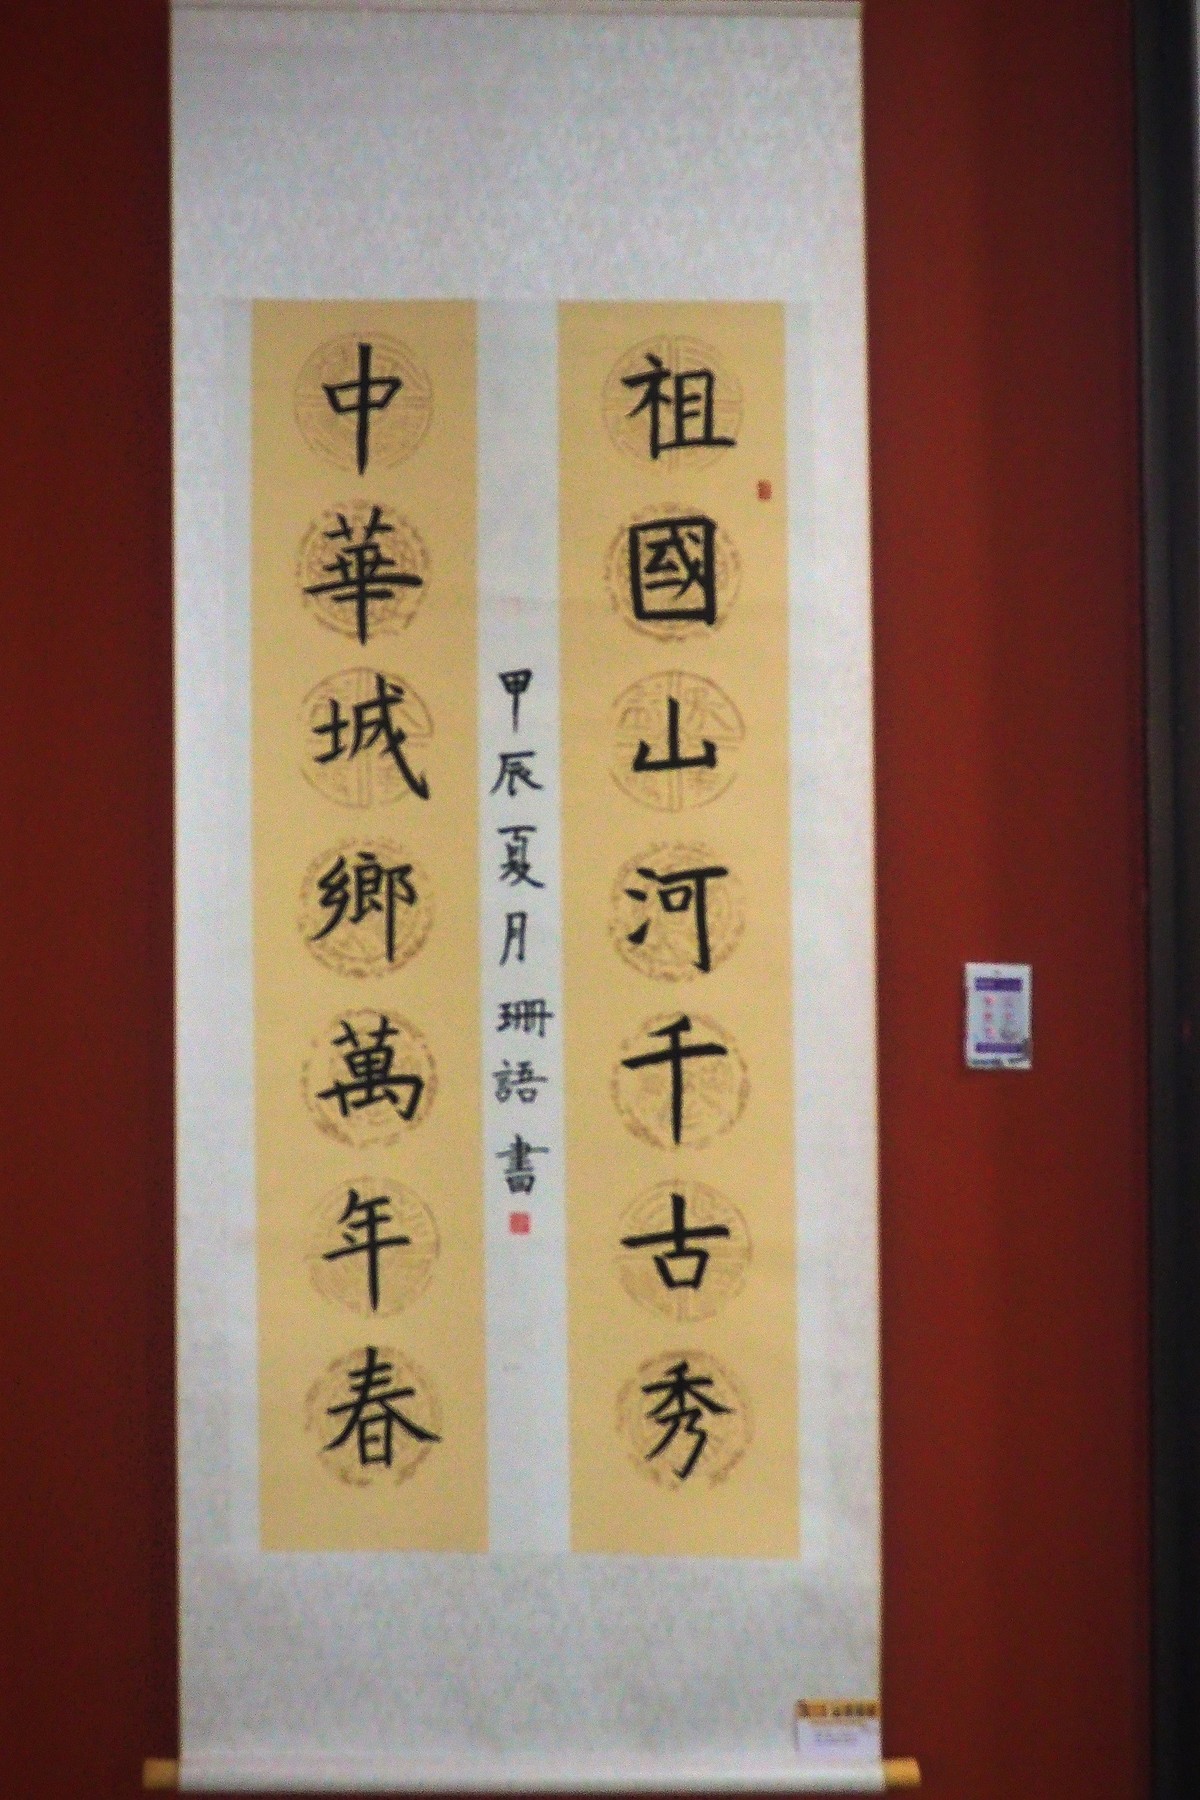 祖國山河千古秀
甲辰夏月珊語書
中華城鄉萬年春